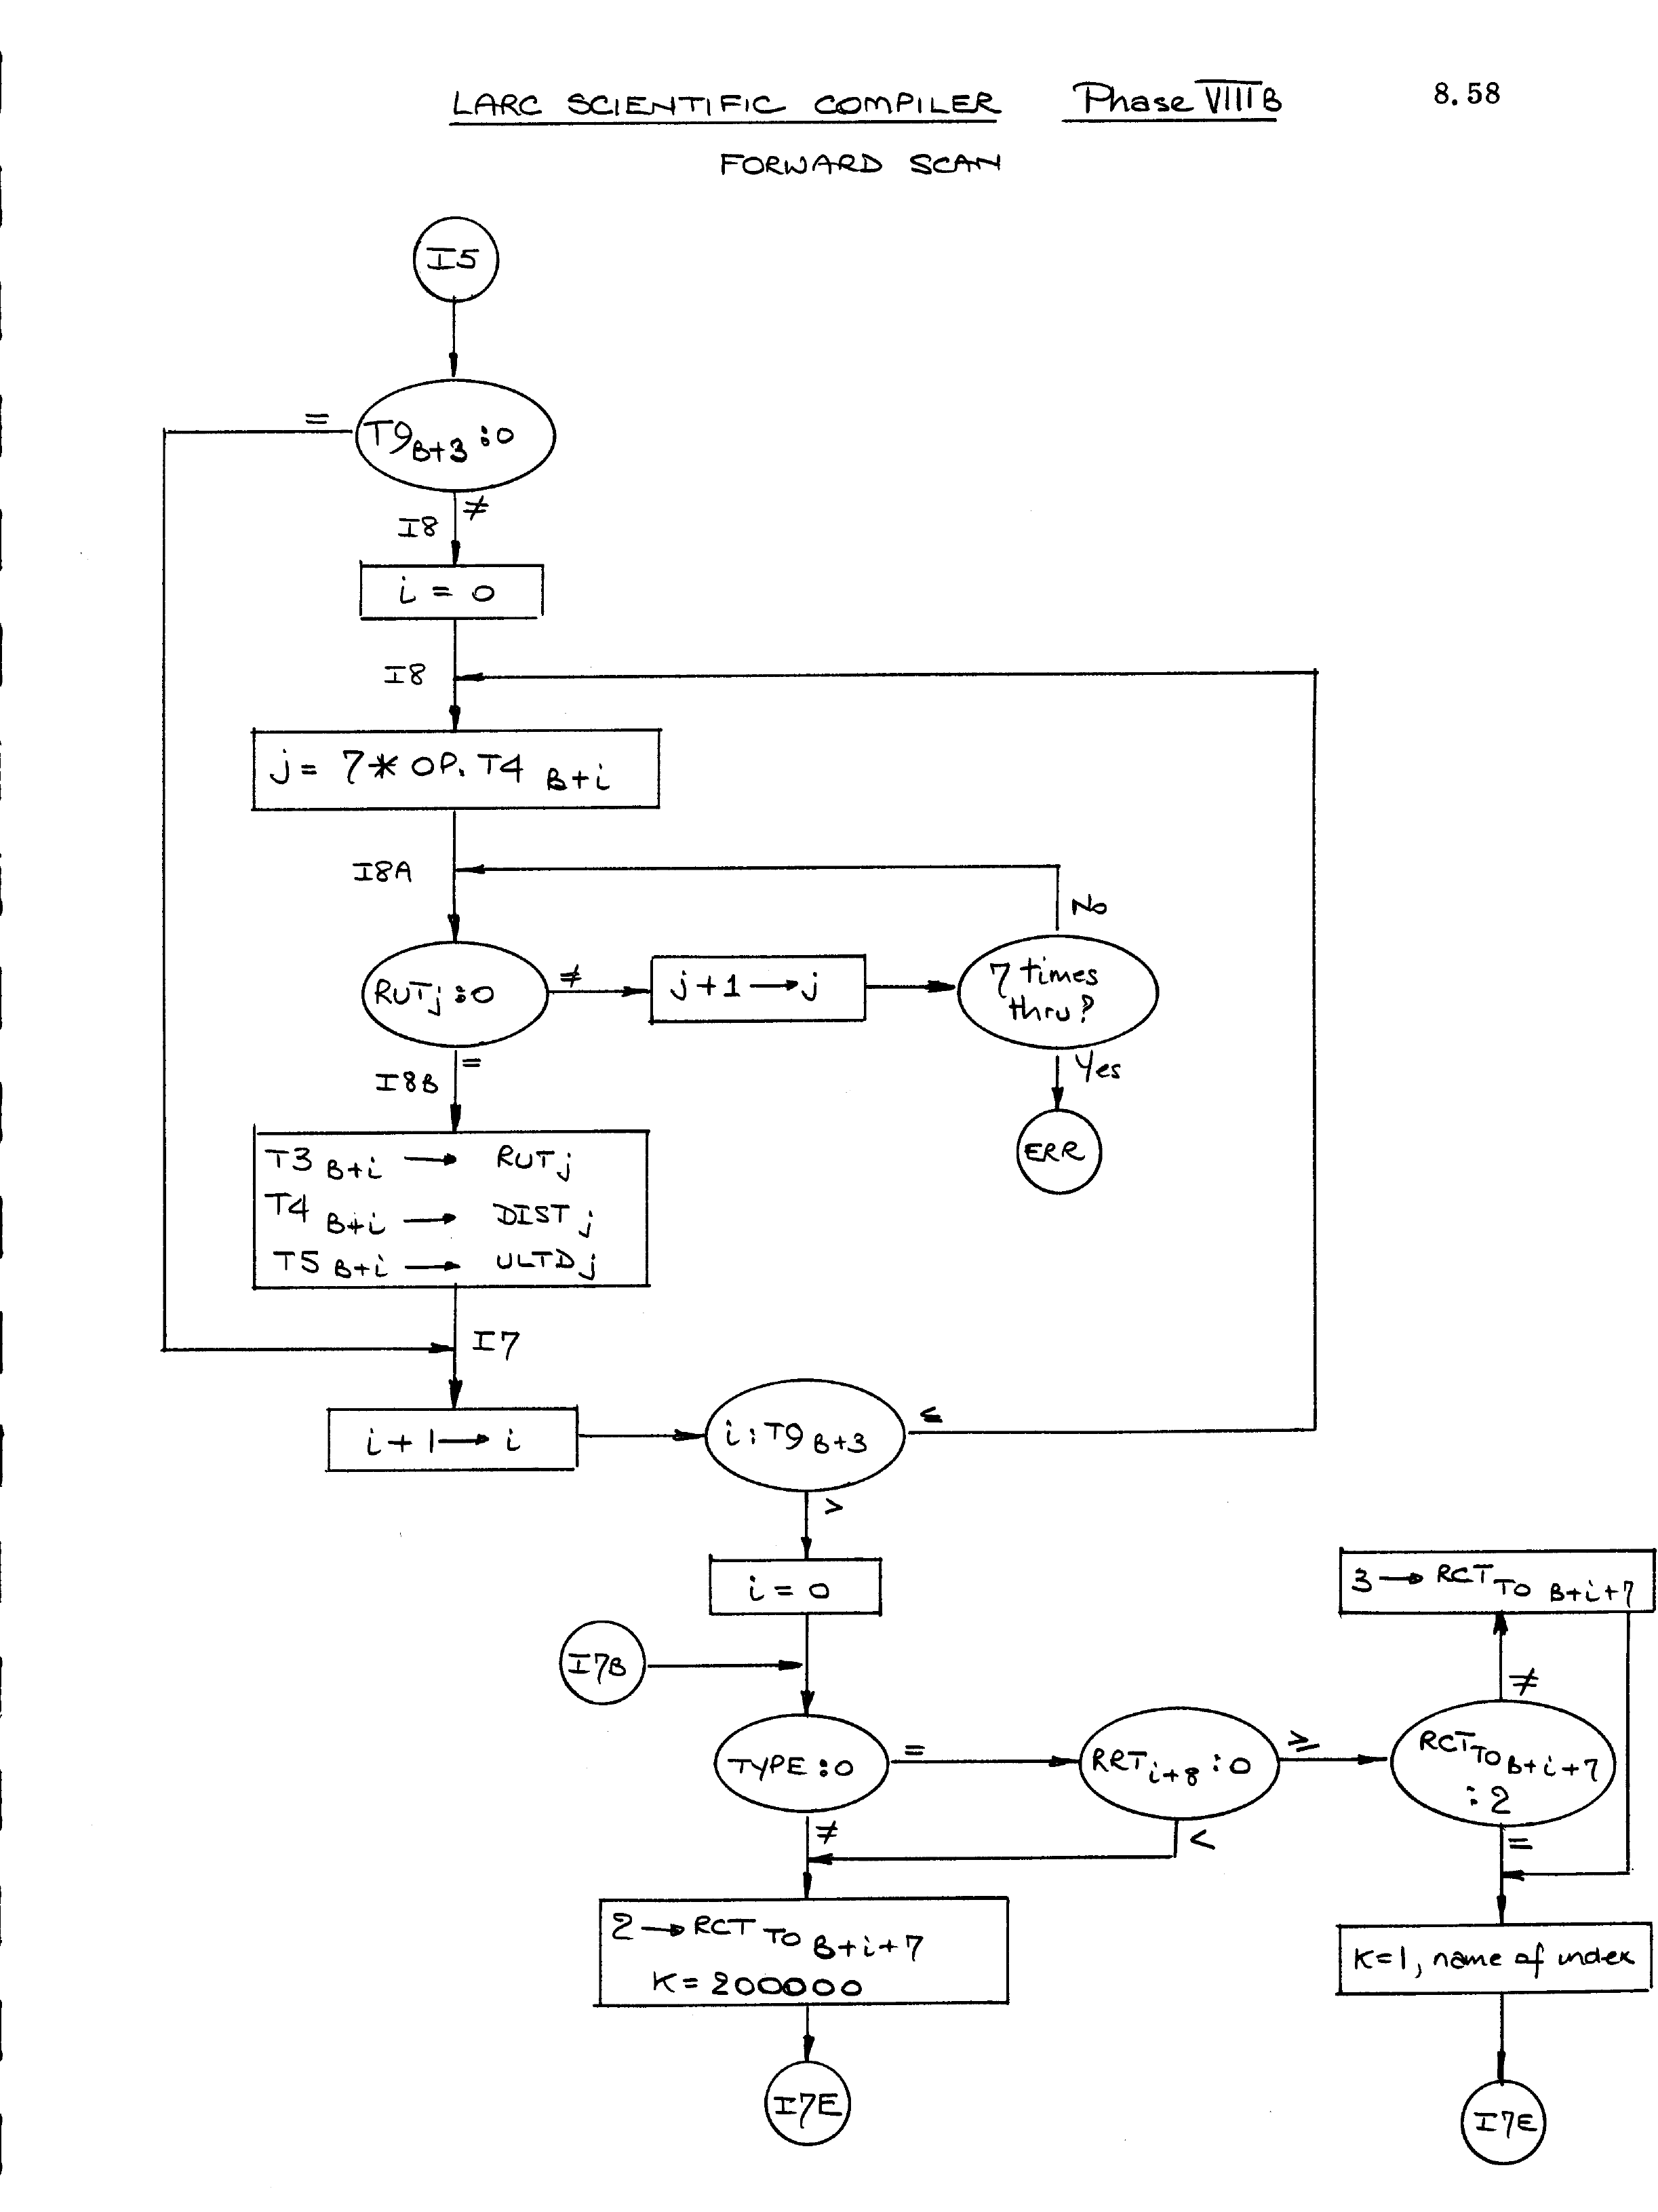 LARC SCIENTIFIC COMPILER Phase VIIIB 8.58
FORWARD SCAN
I5
=
T9B+3 : 0
≠
I8
i = 0
I8
j = 7 * OP. T4 B+i
I8A
No
RUTj : 0
≠
j+1 → j
7 times
thru?
=
Yes
I8B
ERR
T3 B+i → RUTj
T4 B+i → DISTj
T5 B+i → ULTDj
I7
i + 1 → i
i : T9 B+3
≤
>
i = 0
3 → RCT TO B+i+7
I7B
≠
TYPE : 0
=
RRT i+8 : 0
≥
RCT TO B+i+7
: 2
≠
<
=
2 → RCT TO B+i+7
K = 200000
K=1, name of index
I7E
I7E